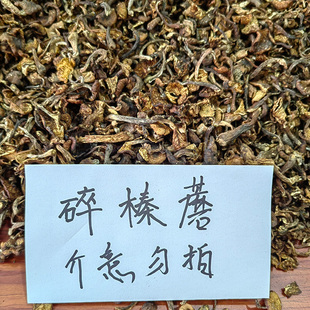 碎榛蘑
介意勿拍